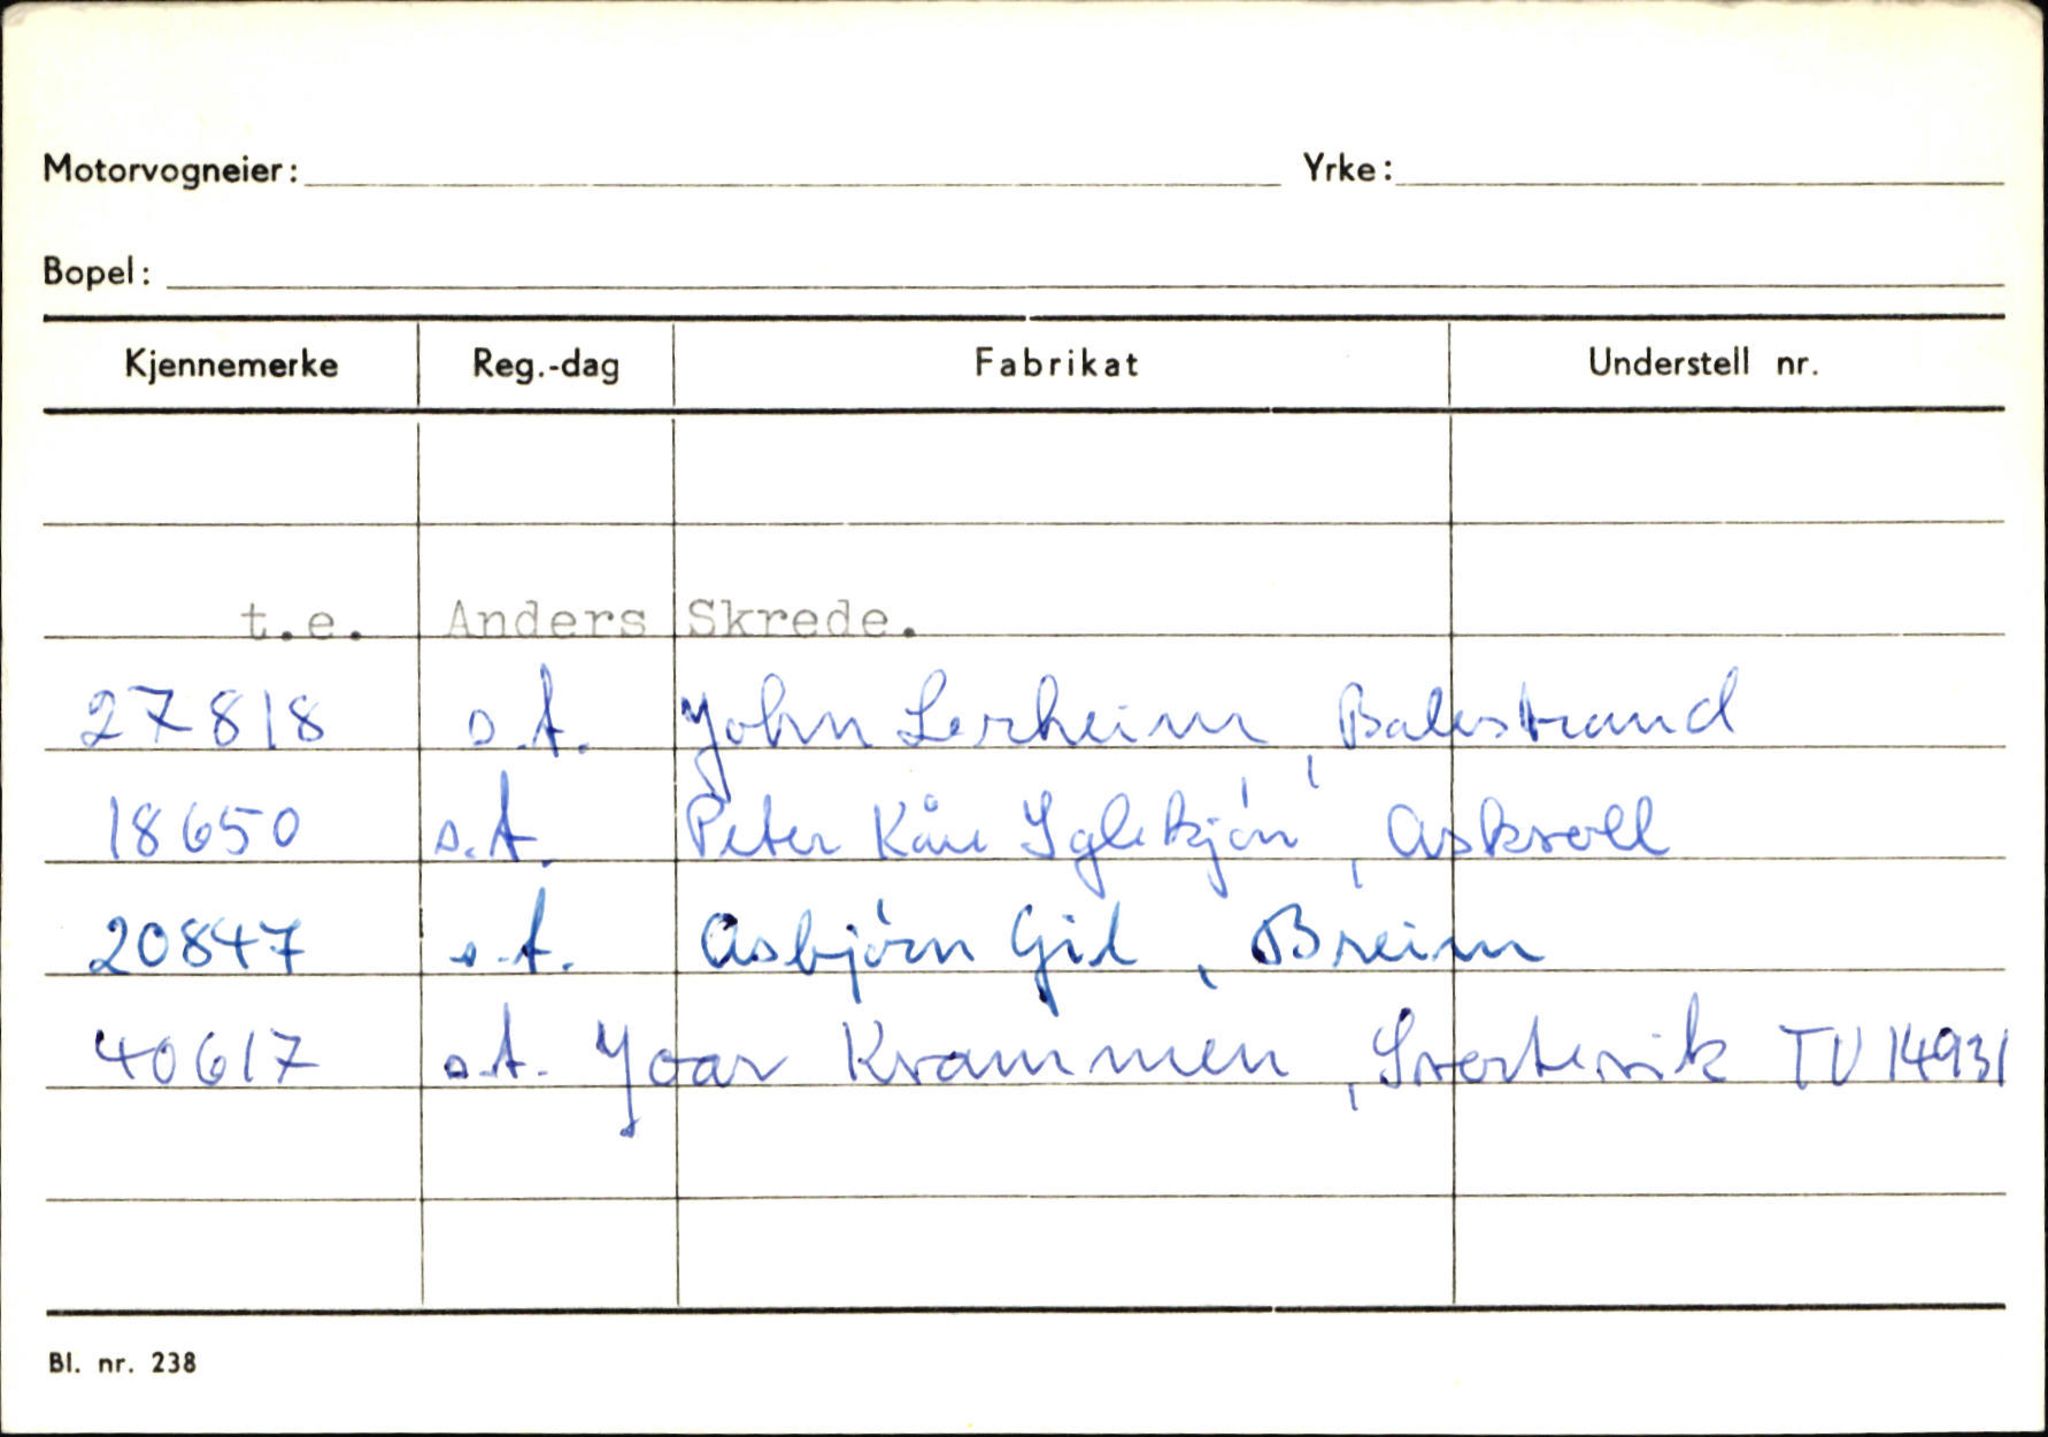 Motorvogneier: Yrke:
Bopel:
Kjennemerke Reg.-dag Fabrikat Understell nr.
t.e. Anders Skrede.
27818 s.A. John Lerheim, Balestrand
18650 s.A. Peter Kåre Iglekjøn, Askvoll
20847 s.A. Asbjørn Gil, Breim
40617 s.A. Joar Krammen, Svortevik TV 14931
Bl. nr. 238